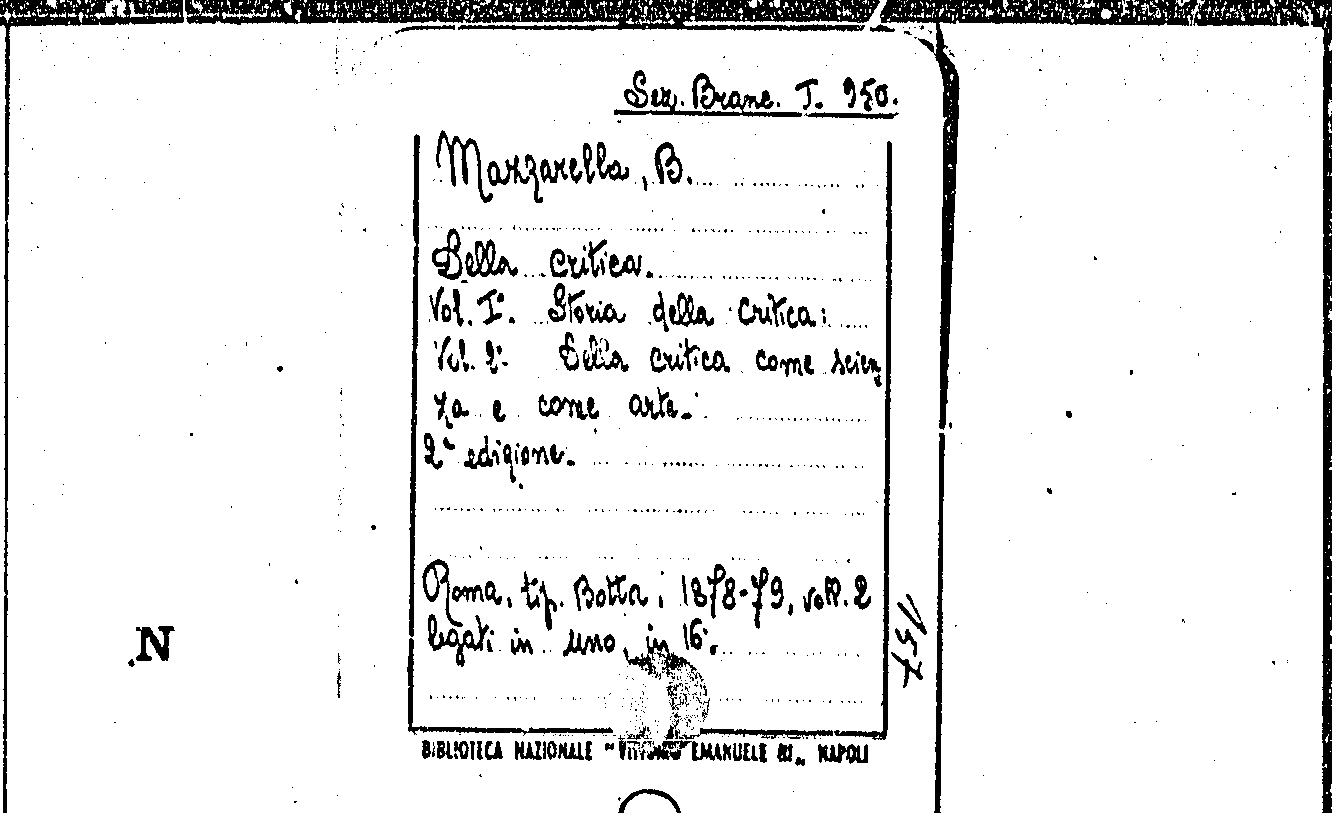 Sez. Branc. I. 950.
Mazzarella, B.
Della critica.
Vol. I°. Storia della critica:
Vol. 2°. Della critica come scien
za e come arte.
2ª edizione.
Roma, tip. Botta, 1878-79, voll. 2
legati in uno, in 16°.
157
N
BIBLIOTECA NAZIONALE "VITTORIO EMANUELE III„ NAPOLI